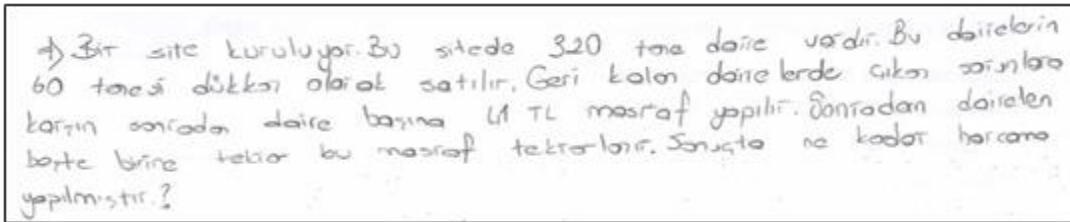 Bir site kuruluyor. Bu sitede 320 tane daire vardır. Bu dairelerin
60 tanesi dükkan olarak satılır. Geri kalan dairelerde çıkan sorunlara
karşın sonradan daire başına 41 TL masraf yapılır. Sonradan dairelen
beşte birine tekrar bu masraf tekrarlanır. Sonuçta ne kadar harcama
yapılmıştır.?